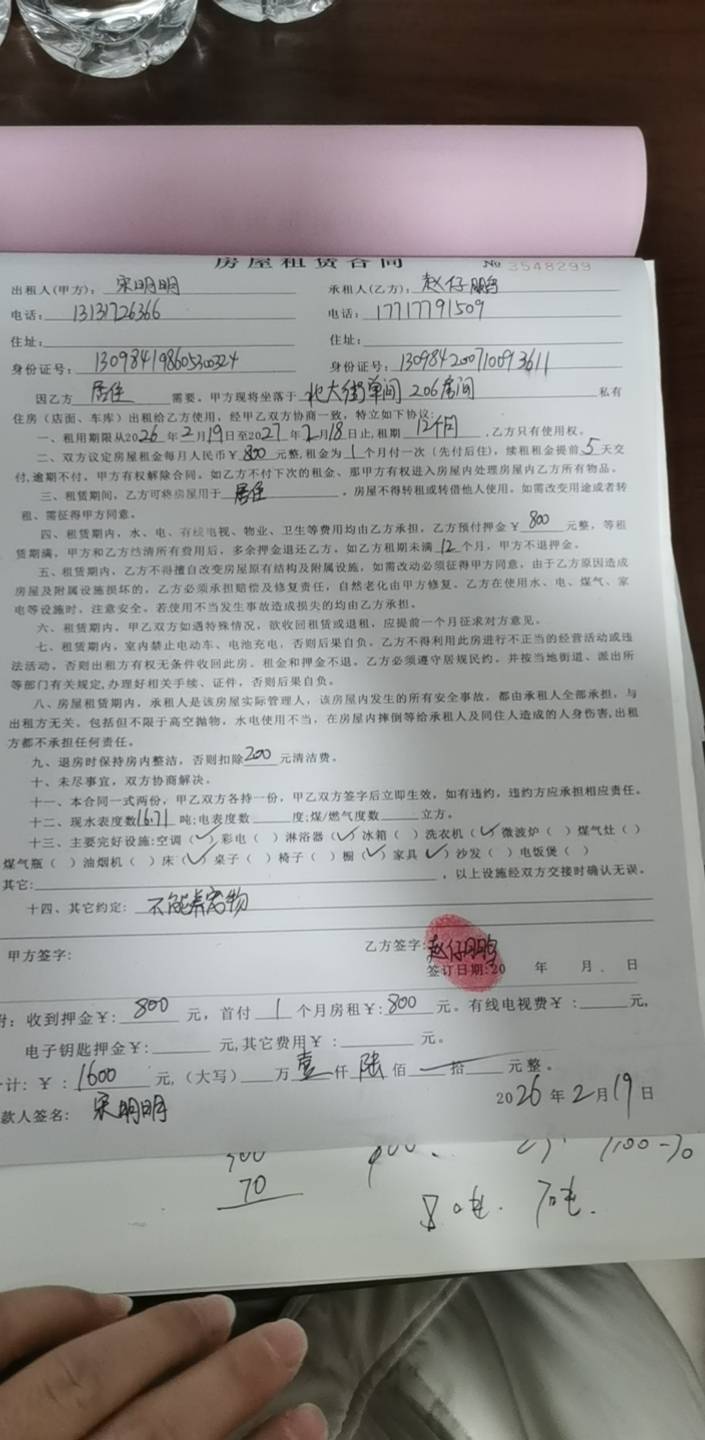 房屋租赁合同 № 3548299
出租人(甲方): 宋明明 承租人(乙方): 赵仔鹏
电话: 13131726366 电话: 17717791509
住址: 住址:
身份证号: 130984198605300324 身份证号: 130984200710093611
因乙方 居住 需要。甲方现将坐落于 北大街单间 206房间 私有
住房（店面、车库）出租给乙方使用，经甲乙双方协商一致，特立如下协议:
一、租用期限从2026年2月19日至2027年2月18日止,租期 12个月 ,乙方只有使用权。
二、双方议定房屋租金每月人民币￥800元整,租金为1个月付一次（先付后住），续租租金提前5天交
付,逾期不付，甲方有权解除合同。如乙方不付下次的租金、那甲方有权进入房屋内处理房屋内乙方所有物品。
三、租赁期间，乙方可将房屋用于 居住 ，房屋不得转租或转借他人使用。如需改变用途或者转
租、需征得甲方同意。
四、租赁期内，水、电、有线电视、物业、卫生等费用均由乙方承担，乙方预付押金￥800元整，等租
赁期满，甲方和乙方结清所有费用后，多余押金退还乙方。如乙方租期未满12个月，甲方不退押金。
五、租赁期内，乙方不得擅自改变房屋原有结构及附属设施，如需改动必须征得甲方同意，由于乙方原因造成
房屋及附属设施损坏的，乙方必须承担赔偿及修复责任，自然老化由甲方修复。乙方在使用水、电、煤气、家
电等设施时，注意安全。若使用不当发生事故造成损失的均由乙方承担。
六、租赁期内，甲乙双方如遇特殊情况，欲收回租赁或退租，应提前一个月征求对方意见。
七、租赁期内，室内禁止电动车、电池充电，否则后果自负。乙方不得利用此房进行不正当的经营活动或违
法活动，否则出租方有权无条件收回此房。租金和押金不退。乙方必须遵守居规民约。并按当地街道、派出所
等部门有关规定,办理好相关手续、证件，否则后果自负。
八、房屋租赁期内，承租人是该房屋实际管理人，该房屋内发生的所有安全事故，都由承租人全部承担，与
出租方无关。包括但不限于高空抛物，水电使用不当，在房屋内摔倒等给承租人及同住人造成的人身伤害,出租
方都不承担任何责任。
九、退房时保持房内整洁，否则扣除200元清洁费。
十、未尽事宜，双方协商解决。
十一、本合同一式两份，甲乙双方各持一份，甲乙双方签字后立即生效，如有违约，违约方应承担相应责任。
十二、现水表度数1671吨:电表度数 度:煤/燃气度数 立方。
十三、主要完好设施:空调（✓）彩电（ ）淋浴器（✓）冰箱（ ）洗衣机（✓）微波炉（ ）煤气灶（ ）
煤气瓶（ ）油烟机（ ）床（✓）桌子（ ）椅子（ ）橱（✓）家具（✓）沙发（ ）电饭煲（ ）
其它: ，以上设施经双方交接时确认无误。
十四、其它约定: 不能养宠物
甲方签字: 乙方签字: 赵仔鹏
签订日期:20 年 月 日
附: 收到押金￥: 800 元，首付 1 个月房租￥: 800 元。有线电视费￥: 元,
电子钥匙押金￥: 元,其它费用￥: 元。
合计: ￥: 1600 元,（大写） 万 壹 仟 陆 佰 拾 元整。
2026年2月19日
款人签名: 宋明明
70
8吨. 7吨.